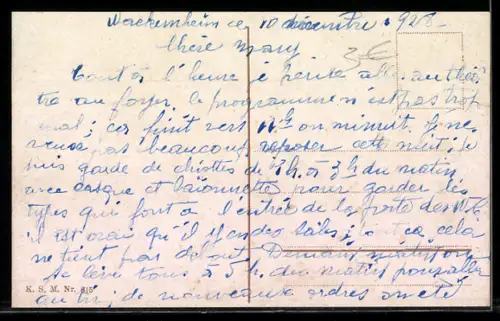 Nackenheim le 10 décembre 1928
Chère Mary
Tout à l'heure je
au foyer, le programme n'est pas trop
mal; ça finit vers 11h ou minuit. Je ne
pas beaucoup reposer cette nuit; je
suis garde de chiottes de 1h à 3h du matin
avec casque et baïonnette pour garder les
types qui font à l'entrée de la porte des W.C.
il est vrai qu'il y en a des sales; tout ça cela
ne tient pas debout. Demain matin on
se lève tous à 5h du matin pour aller
au tir; de nouveaux ordres ont été
3€
K. S. M. Nr. 815